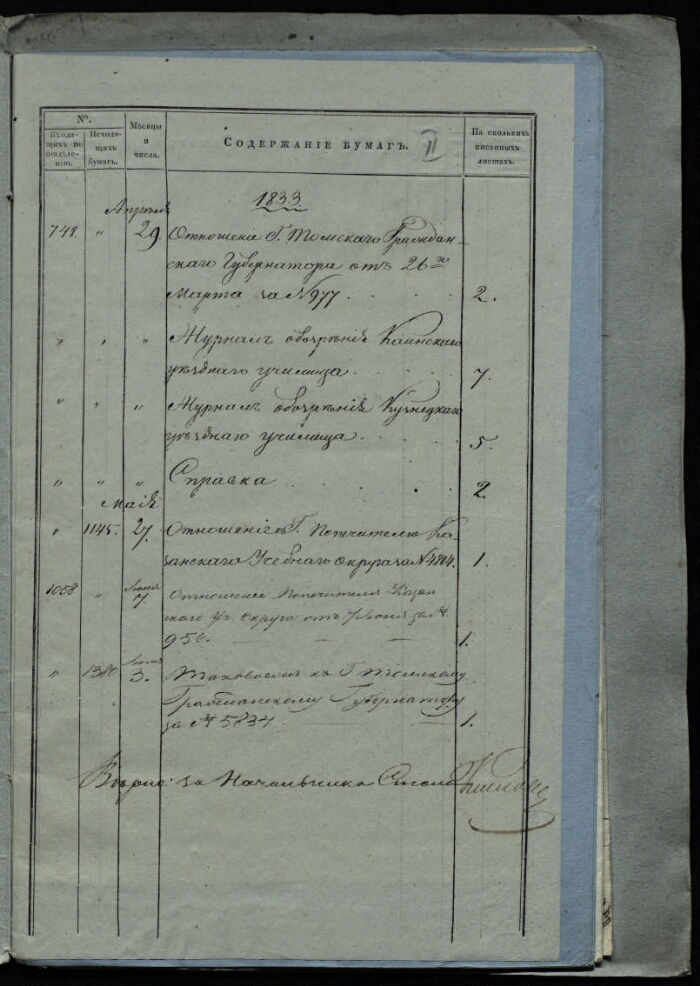 №.
Входящихъ по отдѣленію.
Исходящихъ бумагъ.
Мѣсяцы и числа.
Содержаніе бумагъ.
II
На сколькихъ писанныхъ листахъ.
1833.
Апрѣля
748. " 29. Отношеніе Г. Томскаго Граждан-
скаго Губернатора отъ 26го
Марта за №977. 2.
" " " Журналъ обозрѣнія Каинскаго
уѣзднаго училища 7.
" " " Журналъ обозрѣнія Кузнецкаго
уѣзднаго училища 5.
" " " Справка 2.
Маія
" 1145. 27. Отношеніе къ Г. Попечителю Ка-
занскаго Учебнаго округа за №4804. 1.
1058 " Іюня 7. Отношеніе Попечителя Казан
скаго Уч. Округа отъ 7 Іюня за №
956. 1.
" 1380 3. Таковоеже къ Г. Томскому
Гражданскому Губернатору
за № 5834 1.
Вѣрно: за Начальника Стола